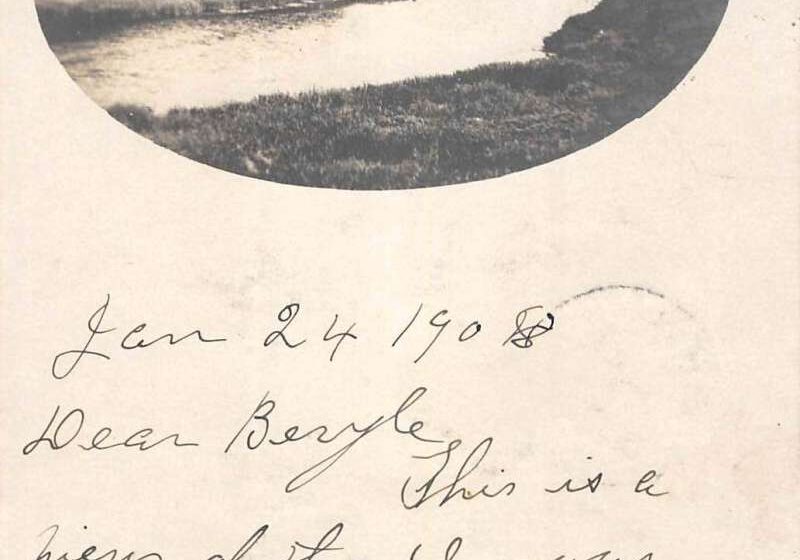 Jan 24 1908
Dear Beryle,
This is a
view